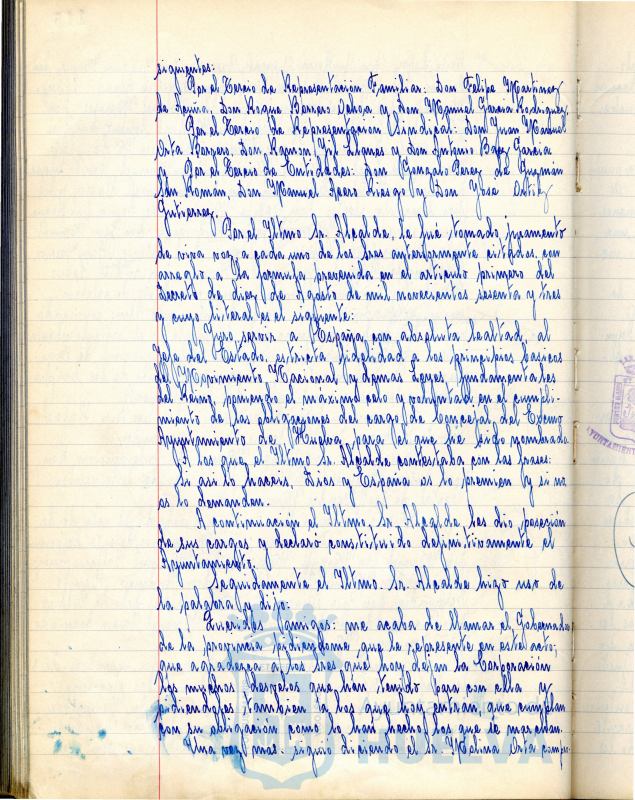 siguientes:
Por el Tercio de Representación Familiar: Don Felipe Martinez
de Acuña, Don Roque Barrero y Don Manuel Garcia Rodriguez.
Por el Tercio de Representación Sindical: Don Juan Manuel
Orta Barrero, Don Ramon Gil Llanes y Don Antonio Baez Garcia
y Por el Tercio de Entidades: Don Gonzalo Perez de Guzmán
San Román, Don Manuel Acero Riesgo y Don Jose Ortiz
Gutierrez.
Por el Iltmo Sr. Alcalde, le fué tomado juramento
de viva voz a cada uno de los tres anteriormente citados, con
arreglo a la formula prevenida en el articulo primero del
Decreto de diez de Agosto de mil novecientos sesenta y tres
y cuyo literal es el siguiente:
Juro servir a España con absoluta lealtad, al
Jefe del Estado, estricta fidelidad a los principios basicos
del Movimiento Nacional y demas Leyes fundamentales
del Reino, poniendo el maximo celo y voluntad en el cumpli-
miento de las obligaciones del cargo de Concejal del Excmo
Ayuntamiento de Huelva, para el que he sido nombrado.
A los que el Iltmo Sr. Alcalde contestaba con las frases:
Si asi lo haceis, Dios y España os lo premien y si no,
os lo demanden.
A continuación el Iltmo. Sr. Alcalde les dio posesión
de sus cargos y declaró constituido definitivamente el
Ayuntamiento.
Seguidamente el Iltmo. Sr. Alcalde hizo uso de
la palabra y dijo:
Queridos amigos: me acaba de llamar el Gobernador
de la provincia pidiendome que le represente en este acto,
que agradezca a los tres que hoy dejan la Corporación
los muchos desvelos que han tenido para con ella y
pidiendoles tambien a los que hoy entran, que cumplan
con su obligacion como lo han hecho los que se marchan.
Una vez mas: siguió diciendo el Sr. Molina Orta cumpu-
HUELVA